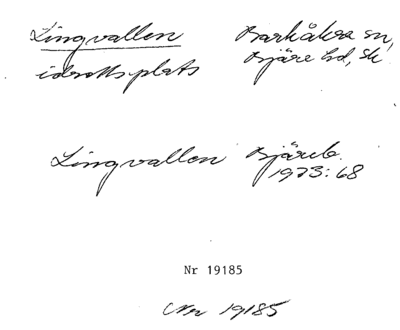 Lingvallen Barkåkra sn,
idrottsplats Bjäre hd, Sk
Lingvallen Bjäreb.
1973:68
Nr 19185
Nr 19185